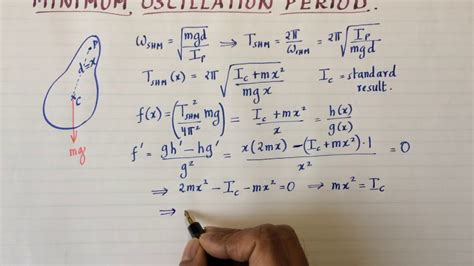 MINIMUM OSCILLATION PERIOD.
ω_SHM = √(mgd / I_P) ⟹ T_SHM = 2π / ω_SHM = 2π √(I_P / mgd)
T_SHM(x) = 2π √((I_C + mx²) / mgx) I_C = standard result.
f(x) = (T²_SHM / 4π² mg) = (I_C + mx²) / x = h(x) / g(x)
f' = (gh' − hg') / g² = (x(2mx) − (I_C + mx²)·1) / x² = 0
⟹ 2mx² − I_C − mx² = 0 ⟹ mx² = I_C
⟹
P
d=x
C
mg